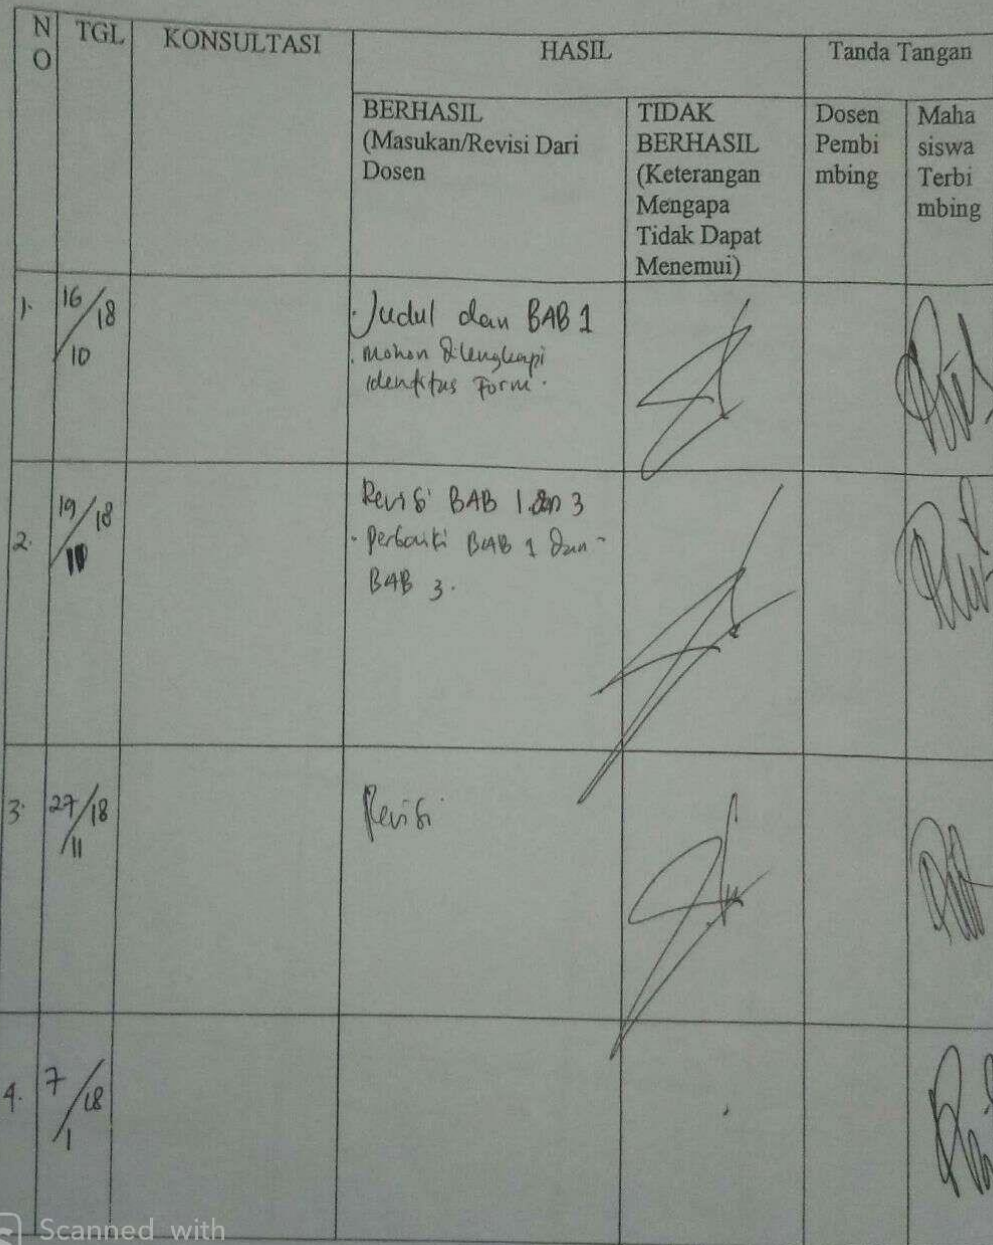 N
O
TGL
KONSULTASI
HASIL
Tanda Tangan
BERHASIL
(Masukan/Revisi Dari
Dosen
TIDAK
BERHASIL
(Keterangan
Mengapa
Tidak Dapat
Menemui)
Dosen
Pembi
mbing
Maha
siswa
Terbi
mbing
1. 16/18
10
Judul dan BAB 1
. Mohon dilengkapi
identitas Form.
2. 19/18
Revisi BAB 1 dan 3
. Perbaiki BAB 1 dan -
BAB 3.
3. 27/18
11
Revisi
4. 7/18
1
Scanned with